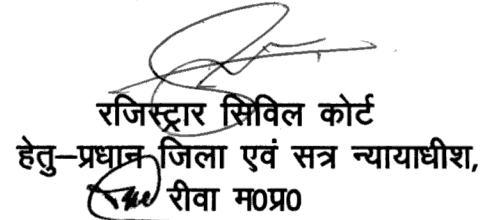 रजिस्ट्रार सिविल कोर्ट
हेतु–प्रधान जिला एवं सत्र न्यायाधीश,
रीवा म0प्र0